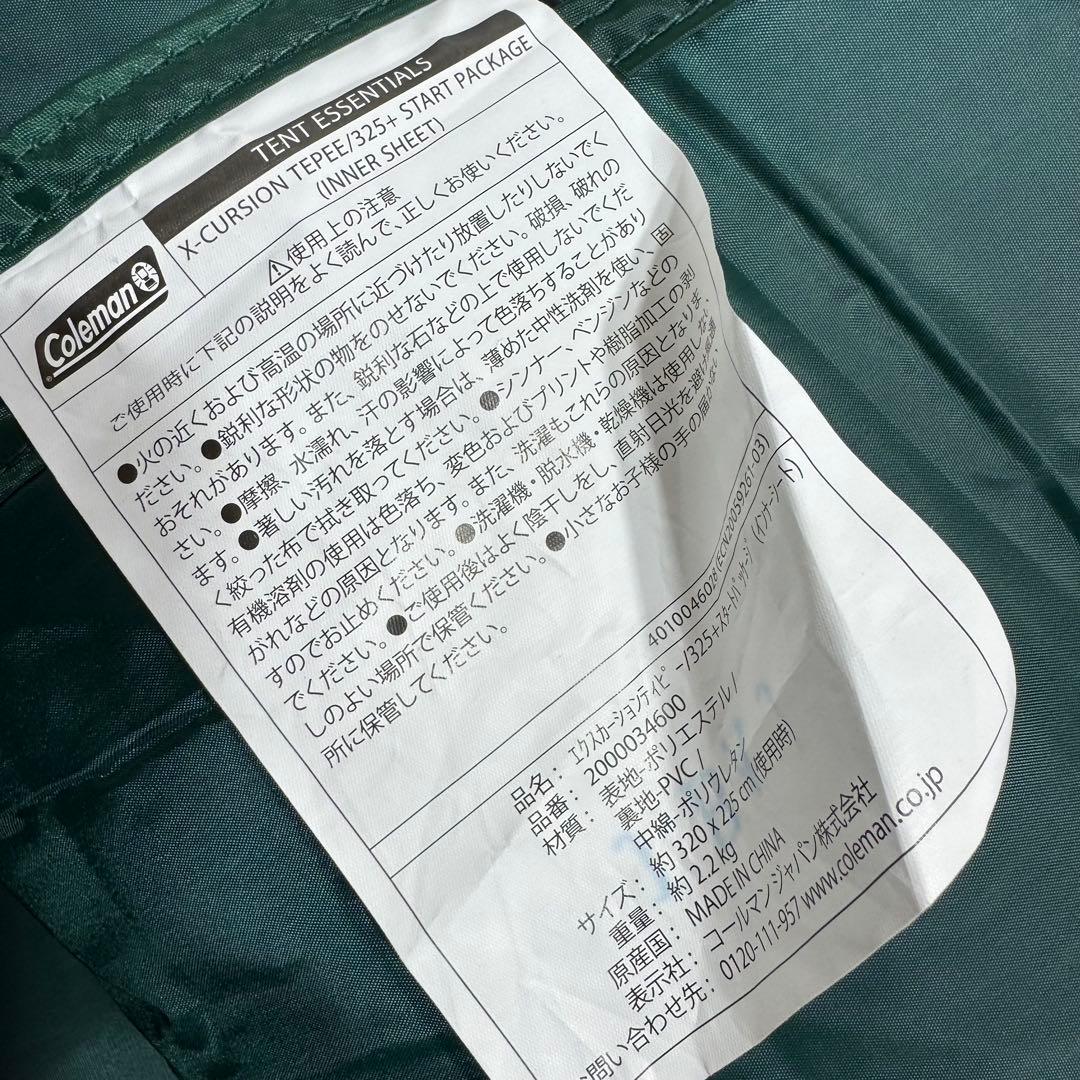 Coleman
TENT ESSENTIALS
X-CURSION TEPEE/325+ START PACKAGE
(INNER SHEET)
⚠使用上の注意
ご使用時に下記の説明をよく読んで、正しくお使いください。
●火の近くおよび高温の場所に近づけたり放置したりしないでく
ださい。●鋭利な形状の物をのせないでください。破損、破れの
おそれがあります。また、鋭利な石などの上で使用しないでくだ
さい。●摩擦、水濡れ、汗の影響によって色落ちすることがあり
ます。●著しい汚れを落とす場合は、薄めた中性洗剤を使い、固
く絞った布で拭き取ってください。●シンナー、ベンジンなどの
有機溶剤の使用は色落ち、変色およびプリントや樹脂加工の剥
がれなどの原因となります。また、洗濯もこれらの原因となりま
すのでお止めください。●洗濯機・脱水機・乾燥機は使用しない
でください。●ご使用後はよく陰干しをし、直射日光を避け風通
しのよい場所で保管ください。●小さなお子様の手の届かない
所に保管してください。
4010046028 (ECN20059261-03)
品名：エクスカーションティピー/325+スタートパッケージ (インナーシート)
品番：2000034600
材質：表地-ポリエステル/
裏地-PVC/
中綿-ポリウレタン
サイズ：約 320 x 225 cm (使用時)
重量：約 2.2 kg
原産国：MADE IN CHINA
表示社：コールマン ジャパン株式会社
お問い合わせ先：0120-111-957 www.coleman.co.jp